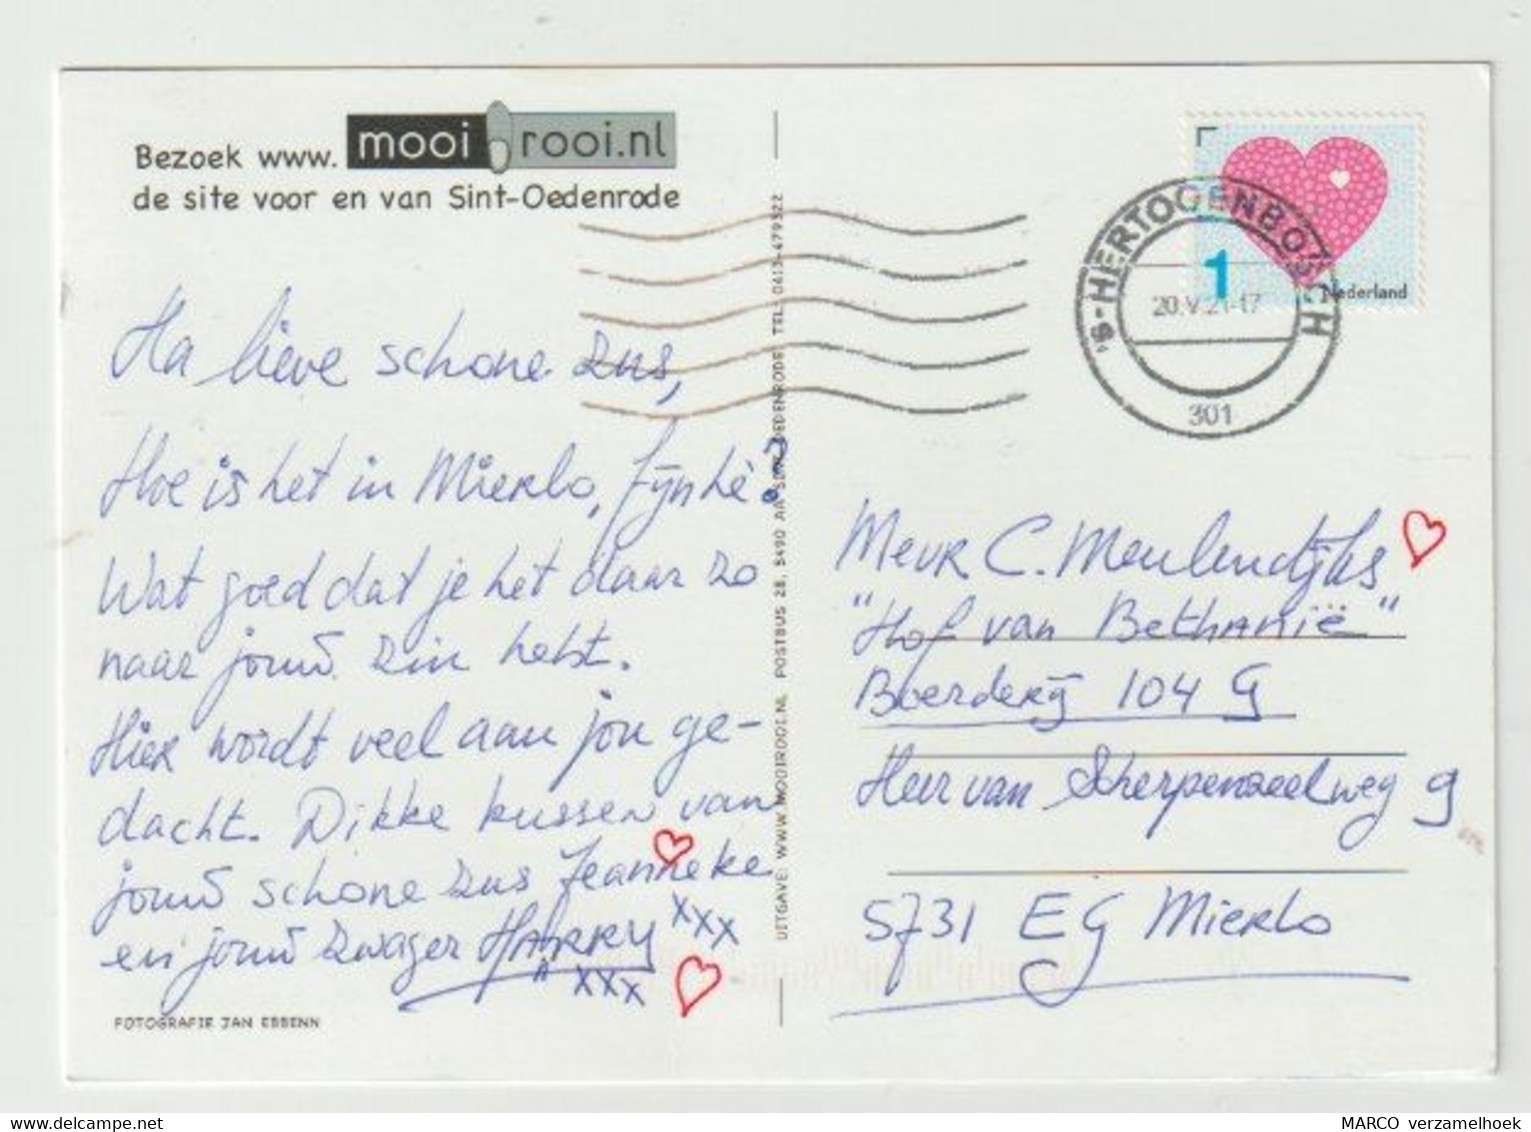 Bezoek www. mooi rooi.nl
de site voor en van Sint-Oedenrode
Ha lieve schone zus,
Hoe is het in Mierlo, fijn hè?
Wat goed dat je het daar zo
naar jouw zin hebt.
Hier wordt veel aan jou ge-
dacht. Dikke kussen van
jouw schone zus Jeanneke
xxx
en jouw zwager HARRY
xxx
FOTOGRAFIE JAN EBBENN
UITGAVE: WWW.MOOIROOI.NL POSTBUS 28, 5490 AA SINT-OEDENRODE TEL: 0413-479322
1
Nederland
's-HERTOGENBOSCH
20.V.21-17
301
Mevr C. Meulendijks
"Hof van Bethanië"
Boerderij 104 G
Heer van Scherpenzeelweg 9
5731 EG Mierlo
MARCO verzamelhoek